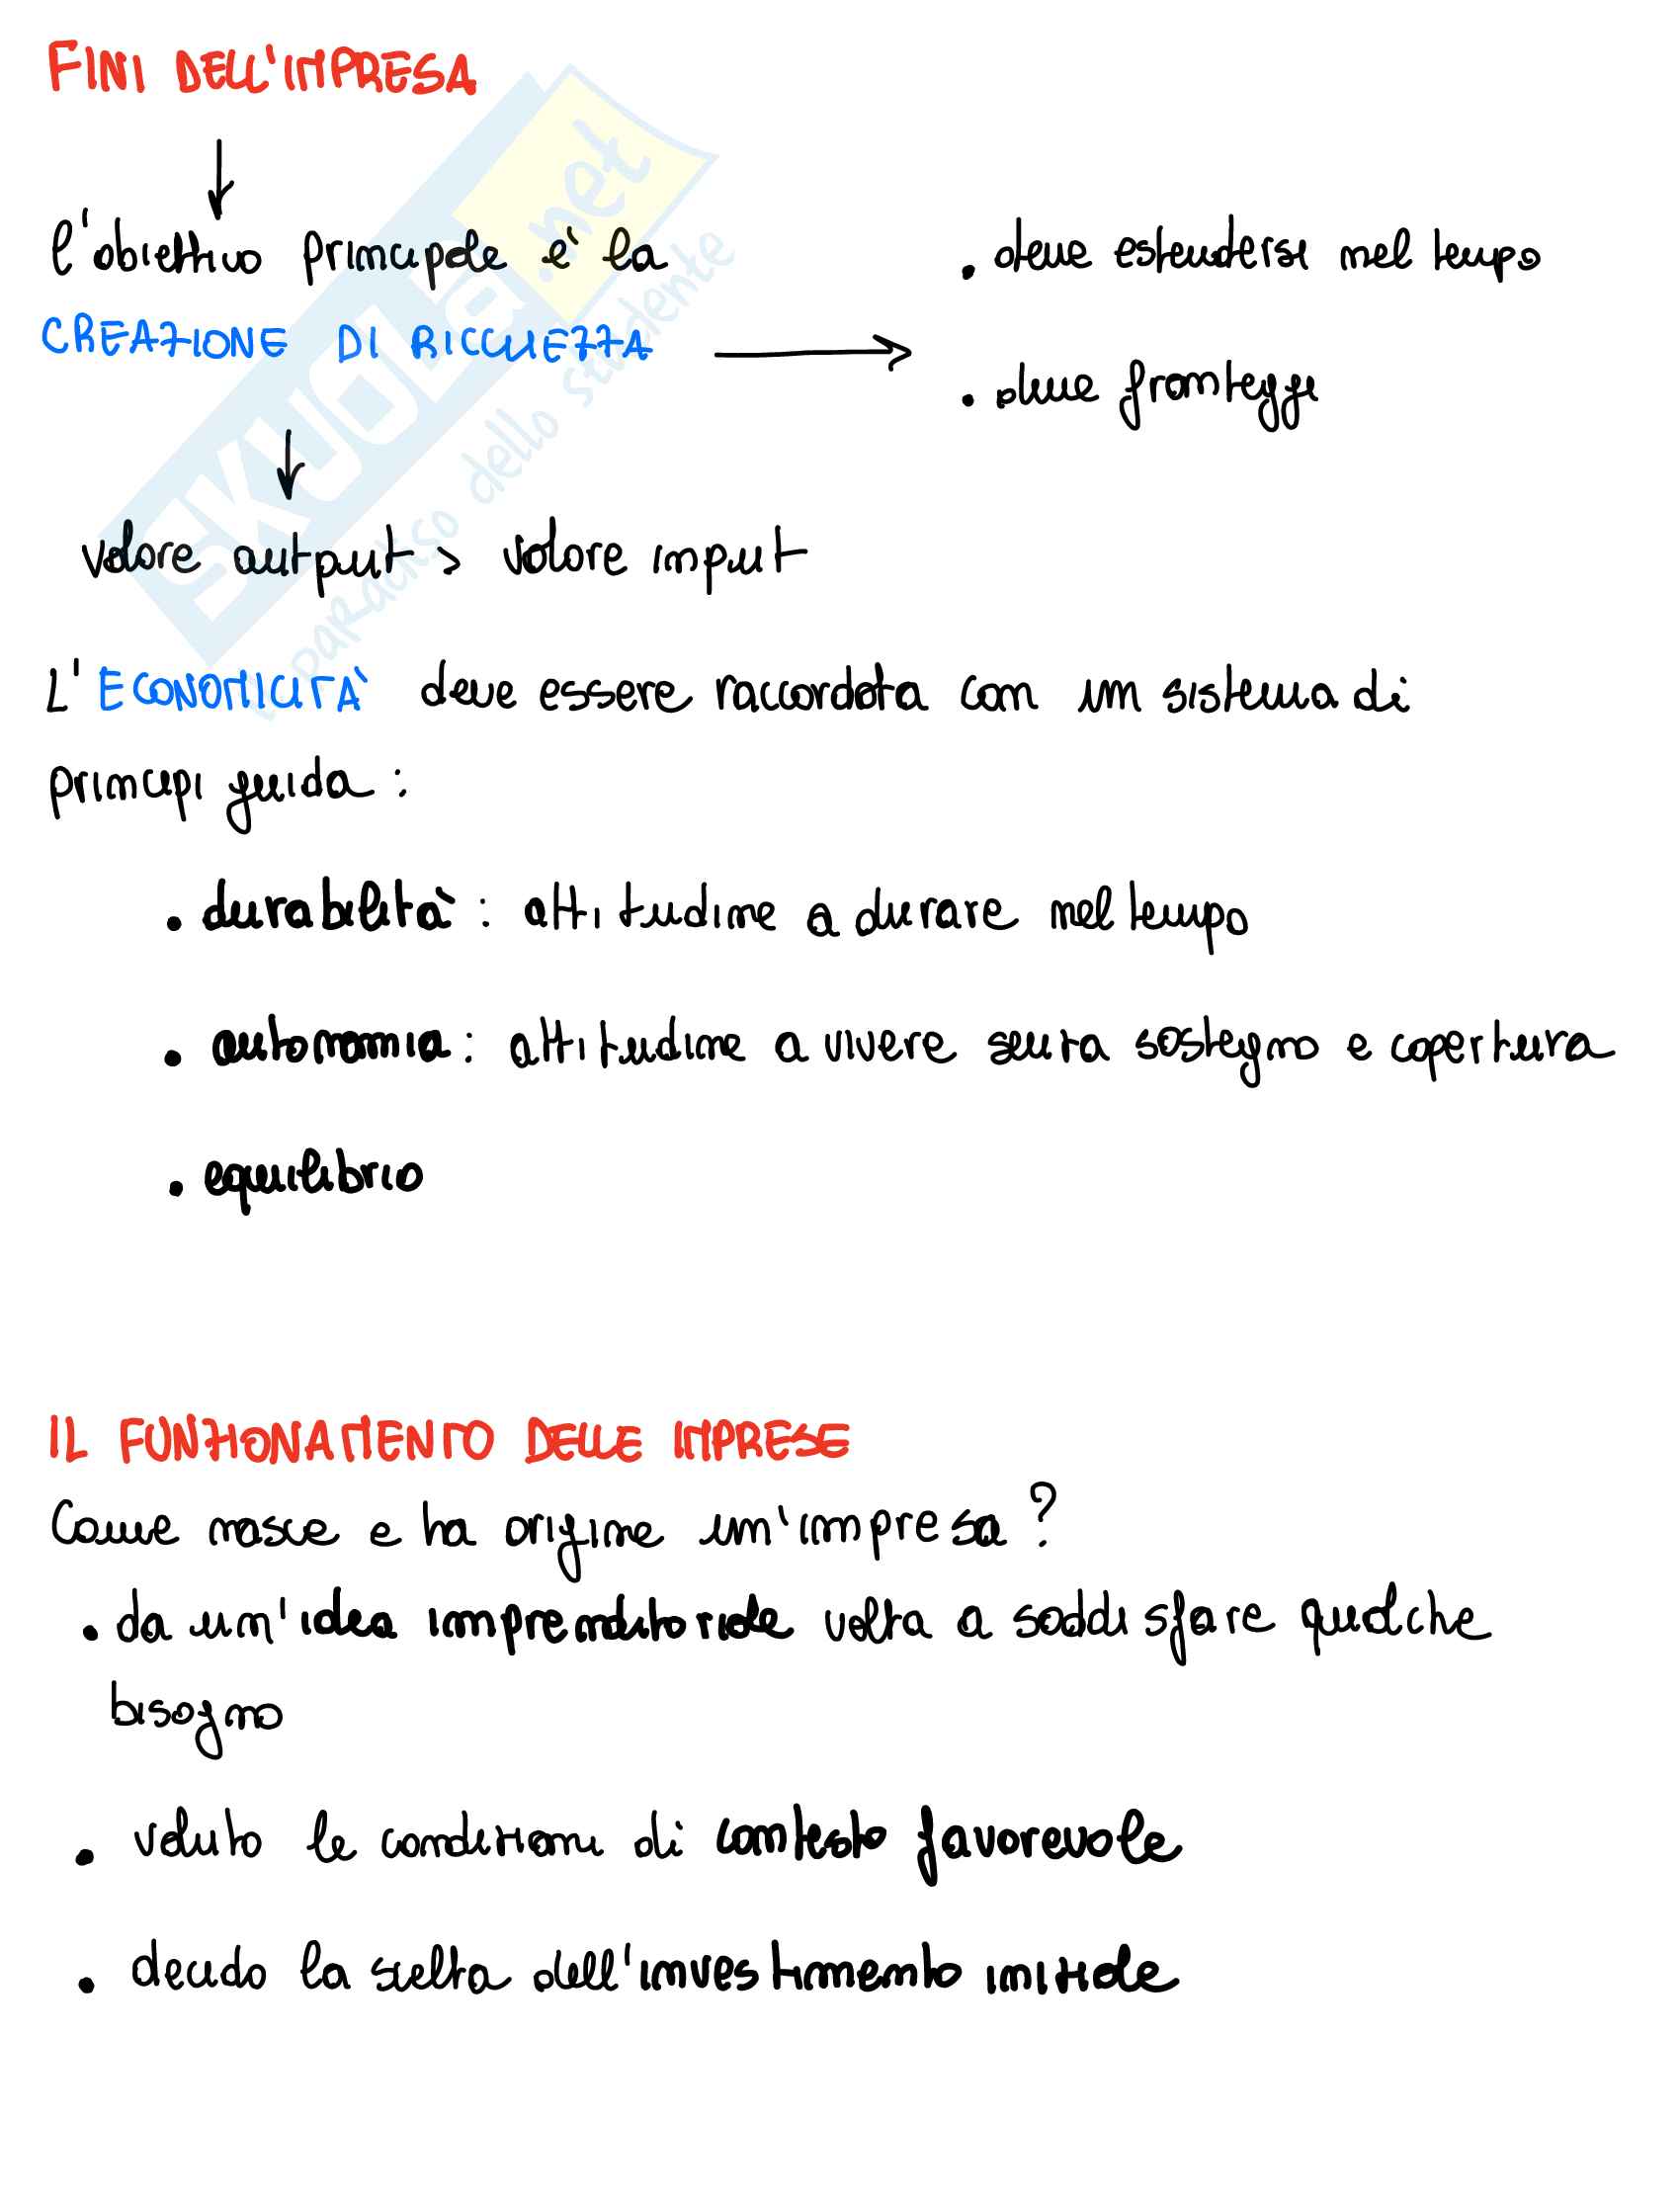 FINI DELL'IMPRESA
l'obiettivo principale e' la
CREAZIONE DI RICCHEZZA
• deve estendersi nel tempo
• deve fronteggi
valore output > valore input
L'ECONOMICITÀ deve essere raccordata con un sistema di
principi guida :
• durabilità : attitudine a durare nel tempo
• autonomia : attitudine a vivere senza sostegno e copertura
• equilibrio
IL FUNZIONAMENTO DELLE IMPRESE
Come nasce e ha origine un'impresa ?
• da un'idea imprenditoriale volta a soddisfare qualche
bisogno
• valuto le condizioni di contesto favorevole
• decido la scelta dell'investimento iniziale
SKUOLa.net
il paradiso dello studente